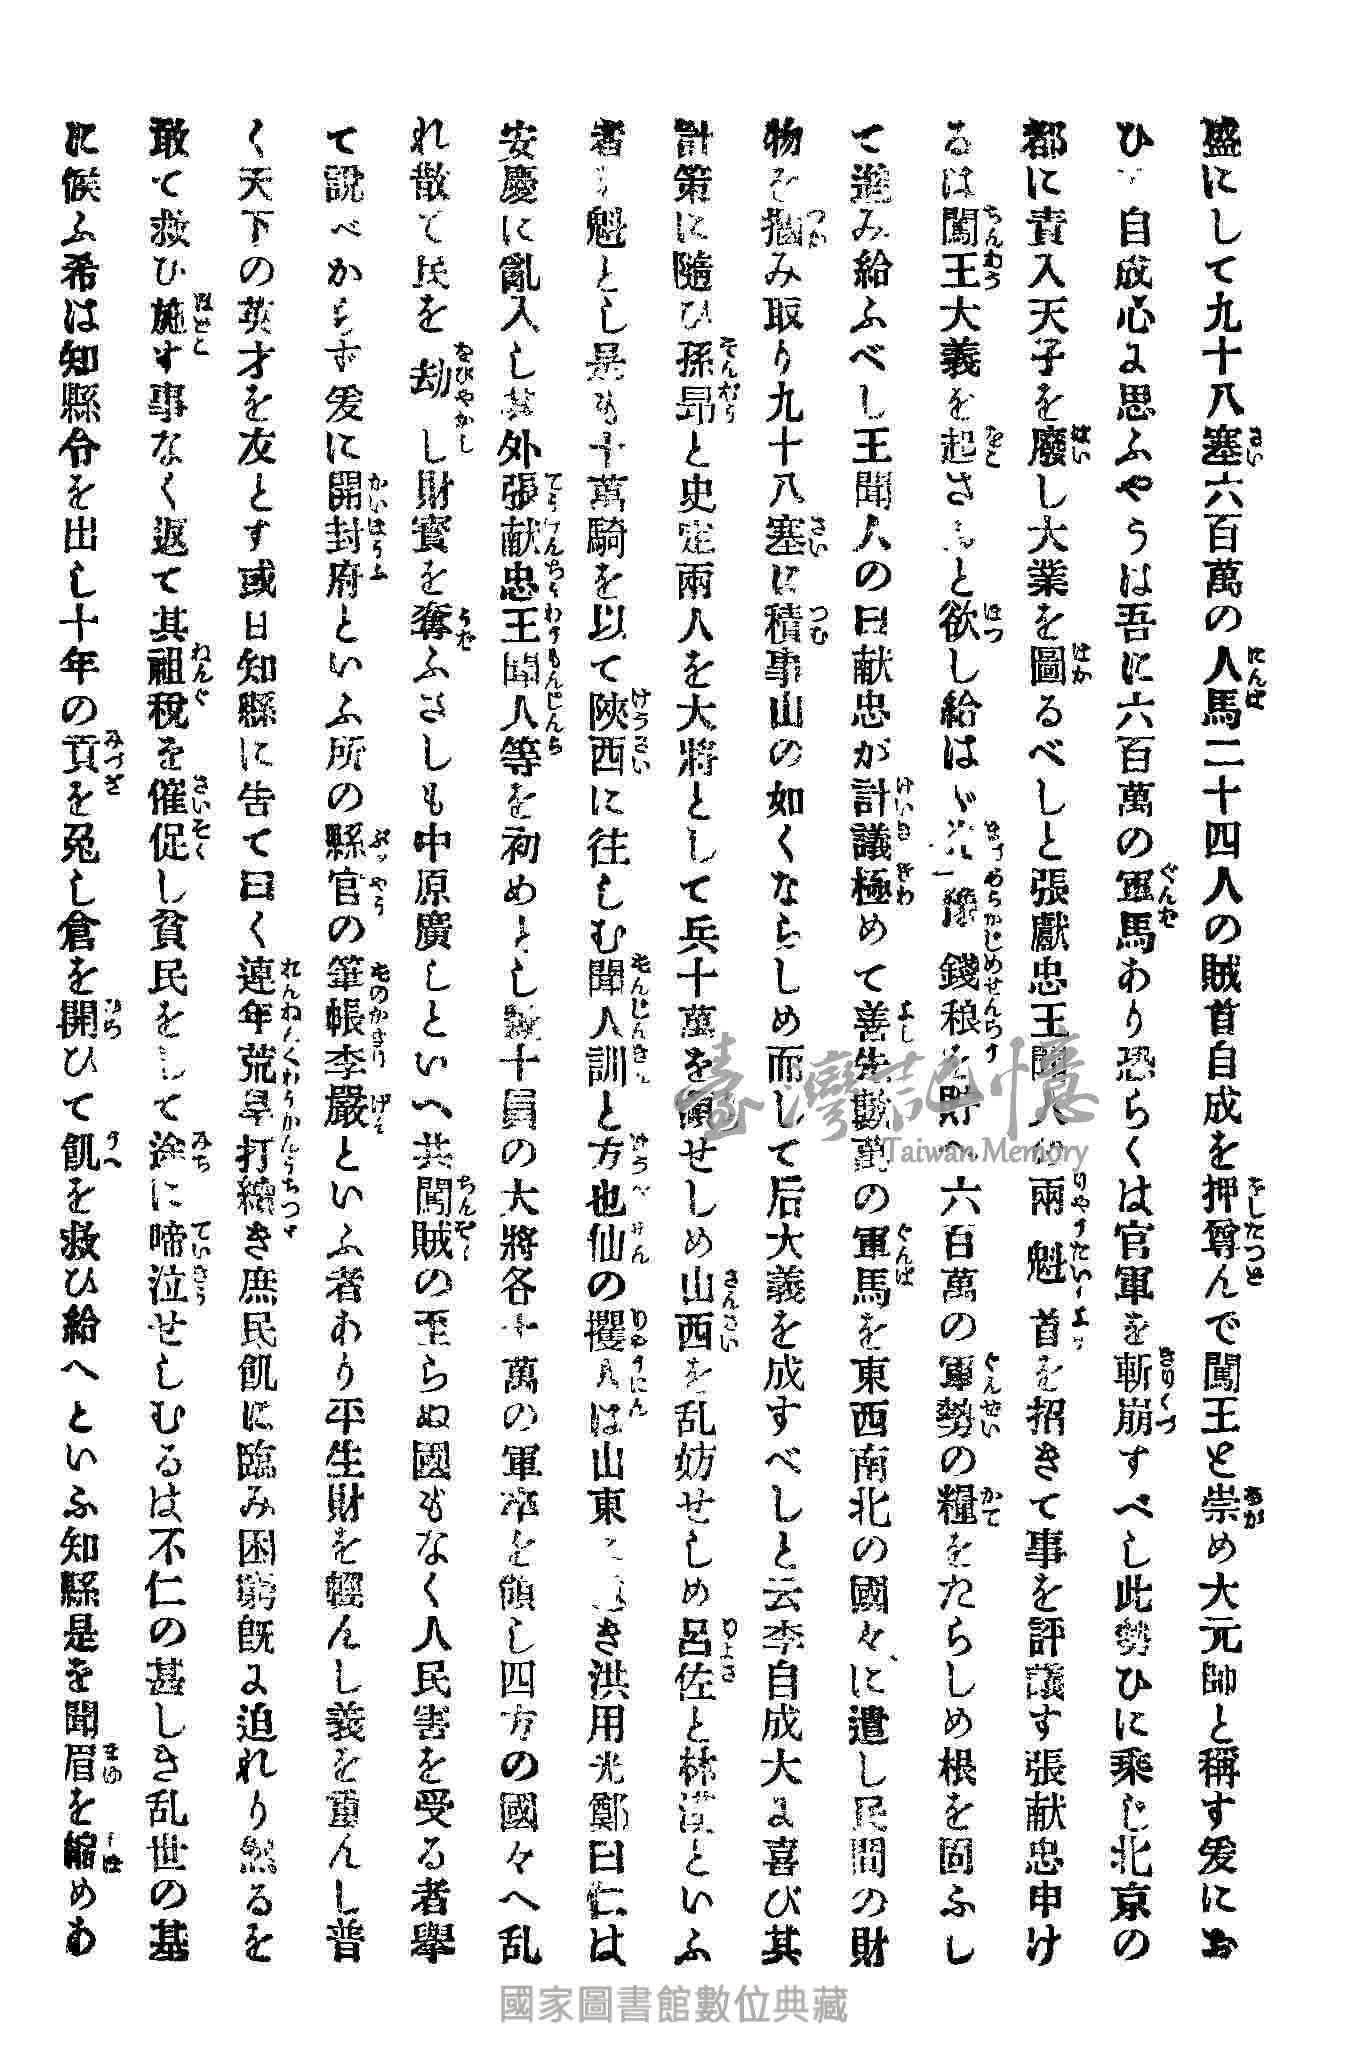 盛にして九十八塞六百萬の人馬二十四人の賊首自成を押尊んで闖王と崇め大元帥と稱す爰にお
ひ 自成心よ思ふやうは吾に六百萬の軍馬あり恐らくは官軍を斬崩すべし此勢ひに乘じ北京の
都に責入天子を廢し大業を圖るべしと張獻忠王聞人の兩魁首を招きて事を評議す張献忠申け
るは闖王大義を起さ と欲し給はゞ 豫錢粮を貯へ六百萬の軍勢の糧をたらしめ根を固ふし
て進み給ふべし王聞人の曰献忠が計議極めて善先數萬の軍馬を東西南北の國々に遣し民間の財
物を掴み取り九十八塞に積事山の如くならしめ而して后大義を成すべしと云李自成大よ喜び其
計策に隨ひ孫昂と史定兩人を大將として兵十萬を領せしめ山西を乱妨せしめ呂佐と林漢といふ
者 魁とし是も十萬騎を以て陝西に往しむ聞人訓と方也仙の攫人は山東 き洪用光鄭曰仁は
安慶に亂入し其外張献忠王聞人等を初めとし數十員の大將各十萬の軍卒を領し四方の國々へ乱
れ散て民を劫し財寳を奪ふさしも中原廣しといへ共闖賊の至らぬ國もなく人民害を受る者擧
て説べからず爰に開封府といふ所の縣官の筆帳李嚴といふ者あり平生財を輕んし義を重んし普
く天下の英才を友とす或日知縣に告て曰く連年荒旱打續き庶民飢に臨み困窮既よ迫れり然るを
敢て救ひ施す事なく返て其祖税を催促し貧民をして途に啼泣せしむるは不仁の甚しき乱世の基
に候ふ希は知縣令を出し十年の貢を免し倉を開ひて飢を救ひ給へといふ知縣是を聞眉を縮めあ
臺灣記憶
Taiwan Memory
國家圖書館數位典藏